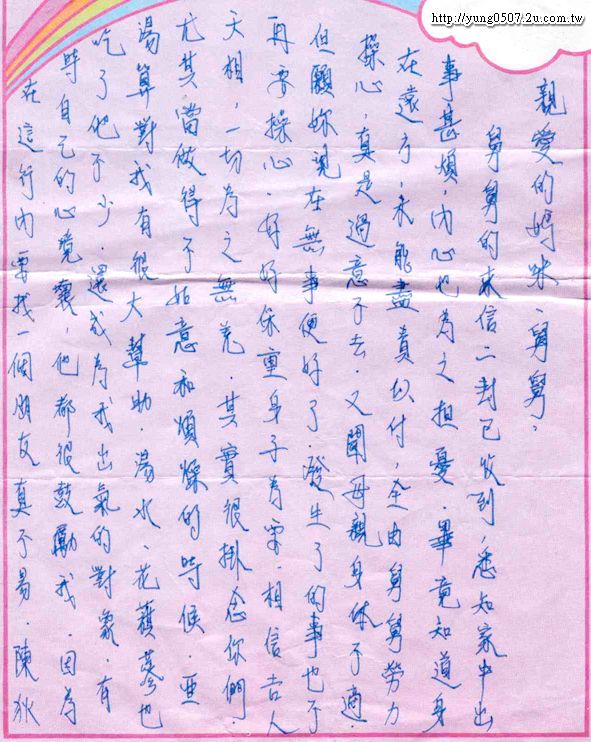 http://yung0507.2u.com.tw
親愛的媽咪、舅舅，
舅舅的來信二封已收到，悉知家中出
事甚煩，內心也為之担憂．畢竟知道身
在遠方，未能盡責似付，全由舅舅勞力
操心，真是過意不去．又聞母親身体不適．
但願妳現在無事便好了．發生了的事也不
再要操心．好好保重身子為要．相信吉人
天相，一切為之無羌．其實很掛念你們．
尤其當做得不如意和煩燥的時候．亜
湯算對我有很大幫助．湯水、花籏蔘也
吃了他不少．還成為我出氣的對象．有
時自己的心境壞，他都很鼓勵我．因為
在這行內要找一個朋友真不易．陳狄